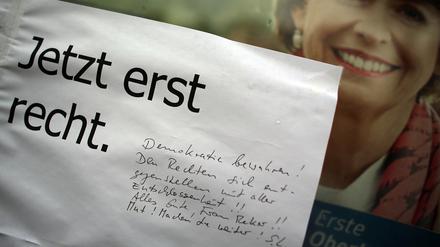 Jetzt erst
recht.
Demokratie bewahren!
Den Rechten sich ent-
gegenstellen mit aller
Entschlossenheit!!
Alles Gute Frau Reker!!
Mut! Machen Sie weiter!
Erste
Ober